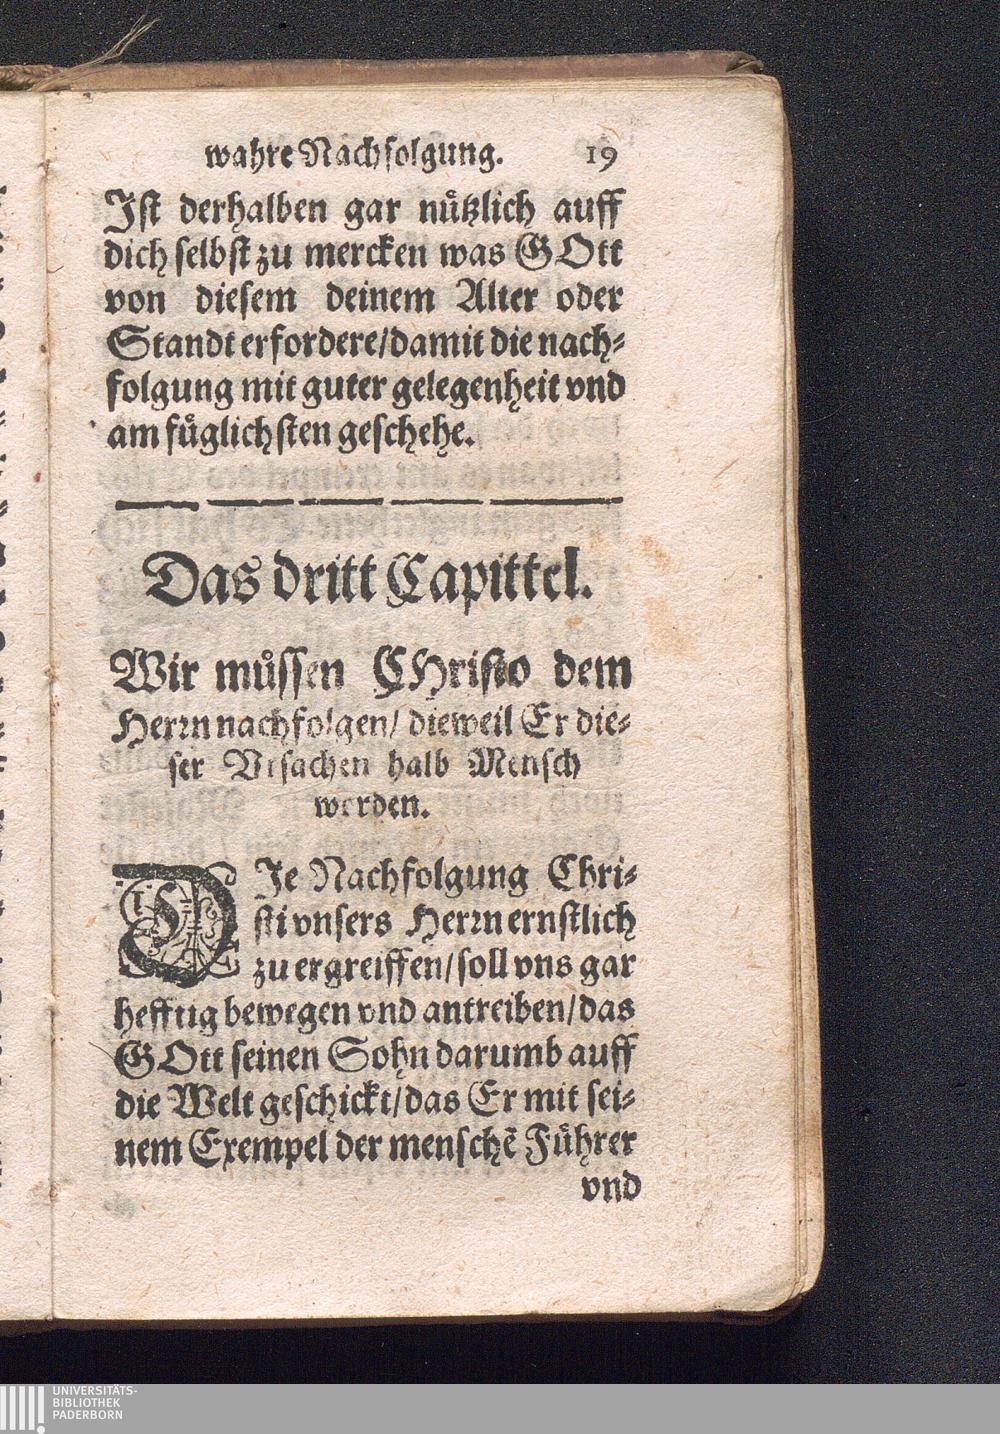 wahre Nachfolgung. 19
Ist derhalben gar nützlich auff
dich selbst zu mercken was GOtt
von diesem deinem Alter oder
Standt erfordere/damit die nach-
folgung mit guter gelegenheit vnd
am füglichsten geschehe.
Das dritt Capittel.
Wir müssen CHristo dem
Herrn nachfolgen/ dieweil Er die-
ser Vrsachen halb Mensch
worden.
DIe Nachfolgung Chri-
sti vnsers Herrn ernstlich
zu ergreiffen/soll vns gar
hefftig bewegen vnd antreiben/das
GOtt seinen Sohn darumb auff
die Welt geschickt/das Er mit sei-
nem Exempel der menschē Führer
vnd
UNIVERSITÄTS-
BIBLIOTHEK
PADERBORN